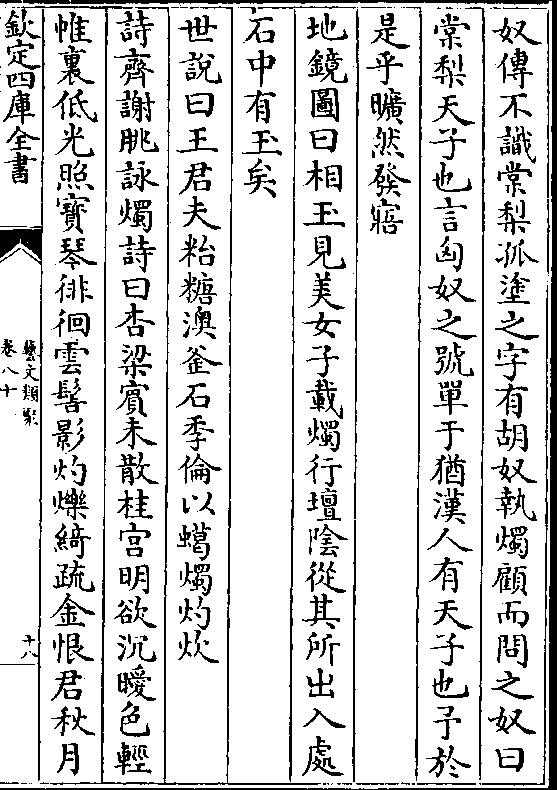 奴傳不識棠梨孤塗之字有胡奴執燭顧而問之奴曰
棠梨天子也言匈奴之號單于猶漢人有天子也予於
是乎曠然發寤
地鏡圖曰相玉見美女子載燭行壇陰從其所出入處
石中有玉矣
世說曰王君夫粘糖澳釜石季倫以蠟燭灼炊
詩齊謝朓詠燭詩曰杏梁賓未散桂宮明欲沉曖色輕
帷裏低光照寶琴徘徊雲髻影灼爍綺疏金恨君秋月
欽定四庫全書
藝文類聚
卷八十
十八